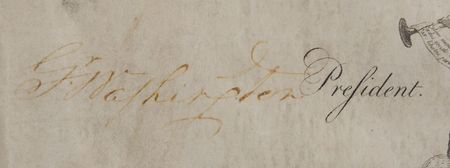 Go Washington President.